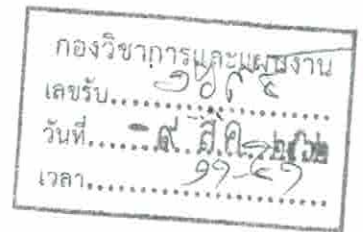 กองวิชาการและแผนงาน
เลขรับ
วันที่ - ๙ ส.ค. ๒๕๖๒
เวลา